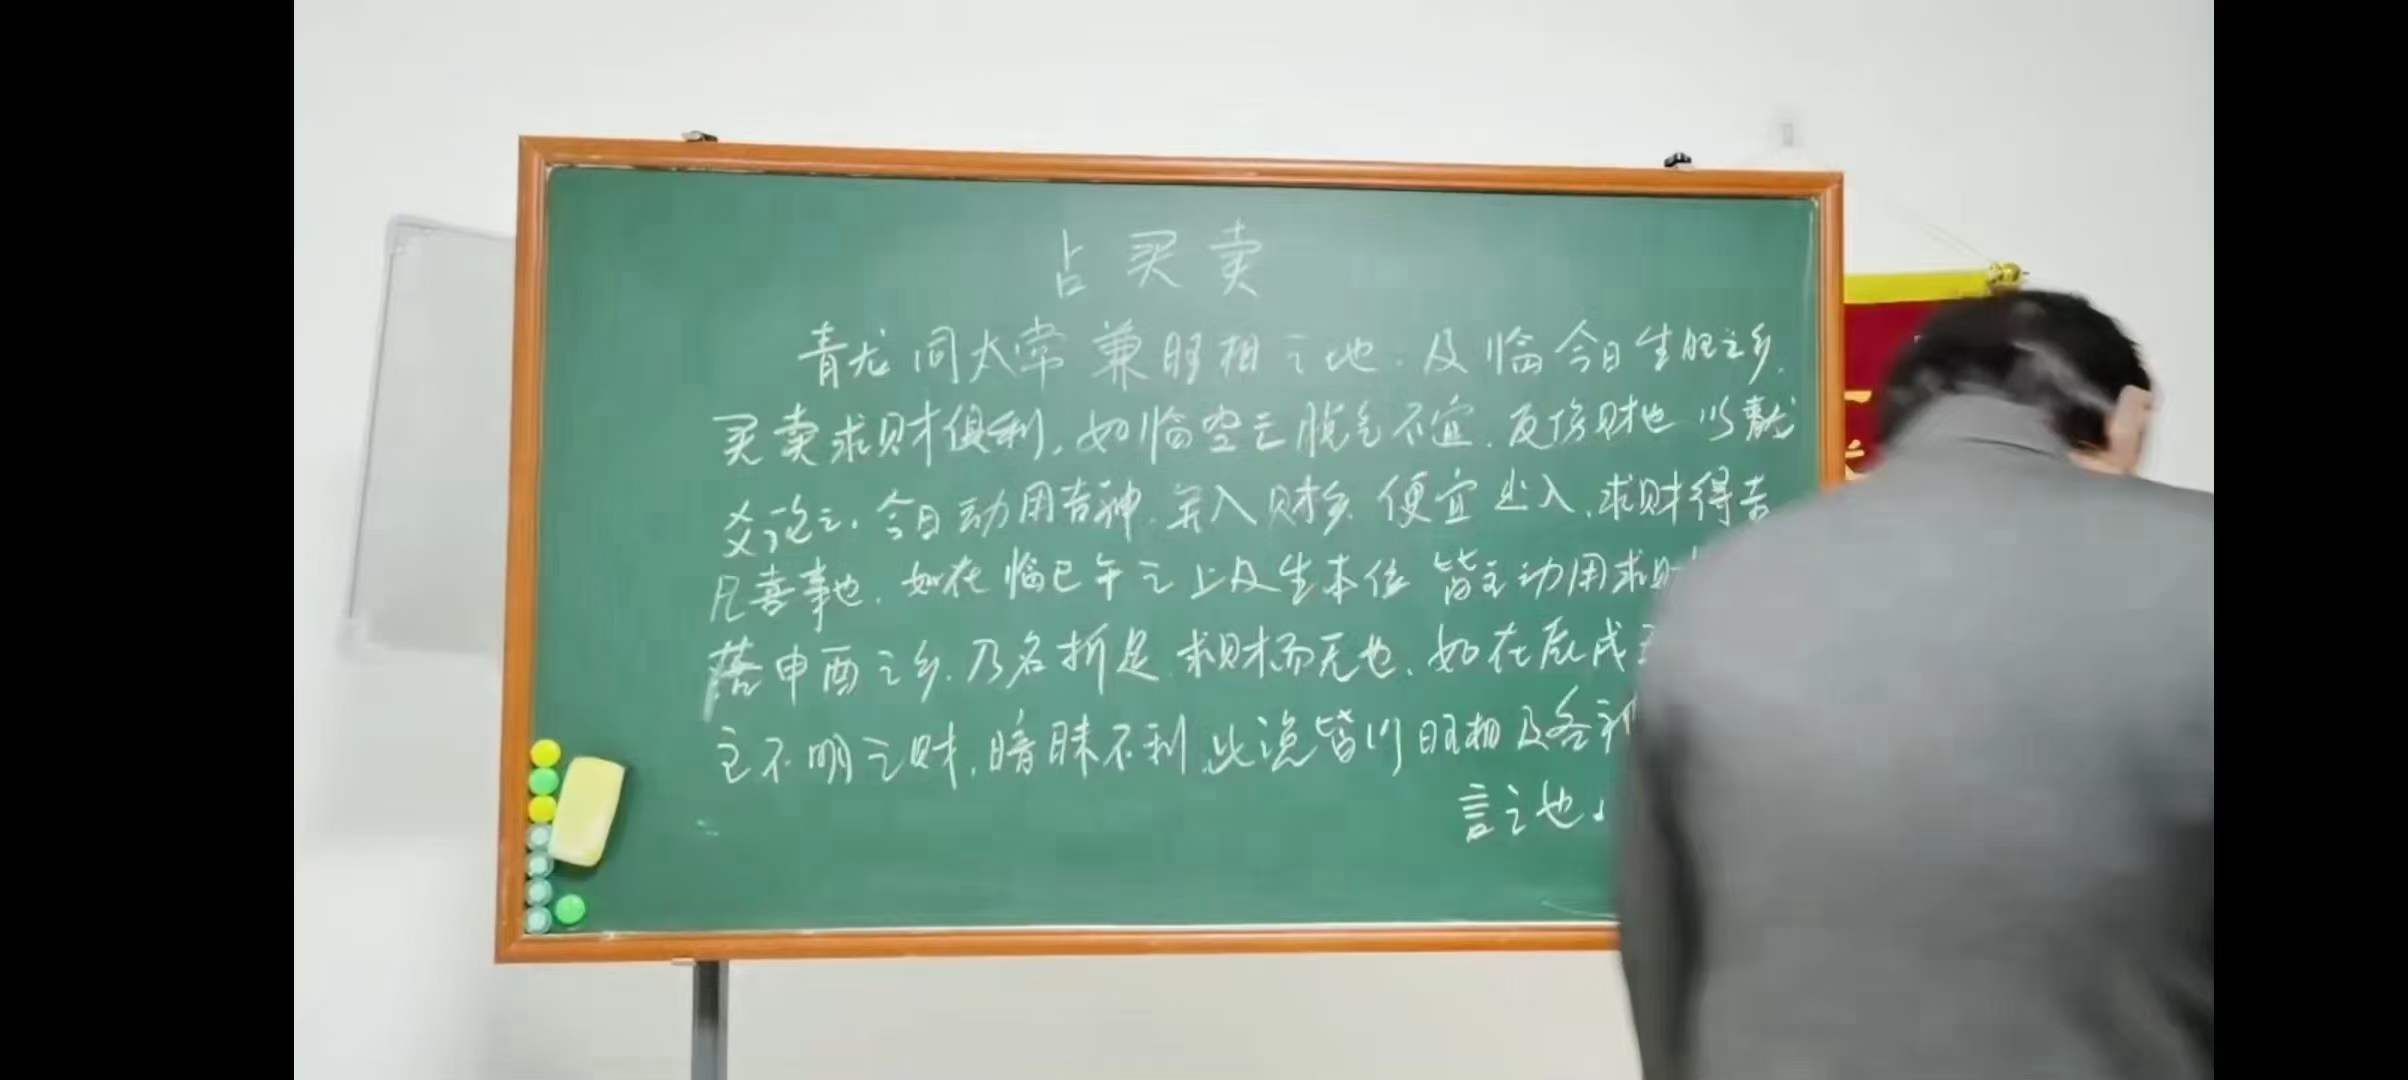 占买卖
青龙同太常兼旺相之地.及临今日生旺之乡.
买卖求财俱利,如临空亡脱气不宜.反伤财也 以青龙
爻论之.今日动用吉神.并入财乡.便宜出入.求财得吉
凡喜事也.如在临巳午之上及生本位 皆主动用求财
落申酉之乡.乃名折足.求财而无也.如在辰戌
主不明之财,暗昧不利.此说皆以旺相及各
言之也